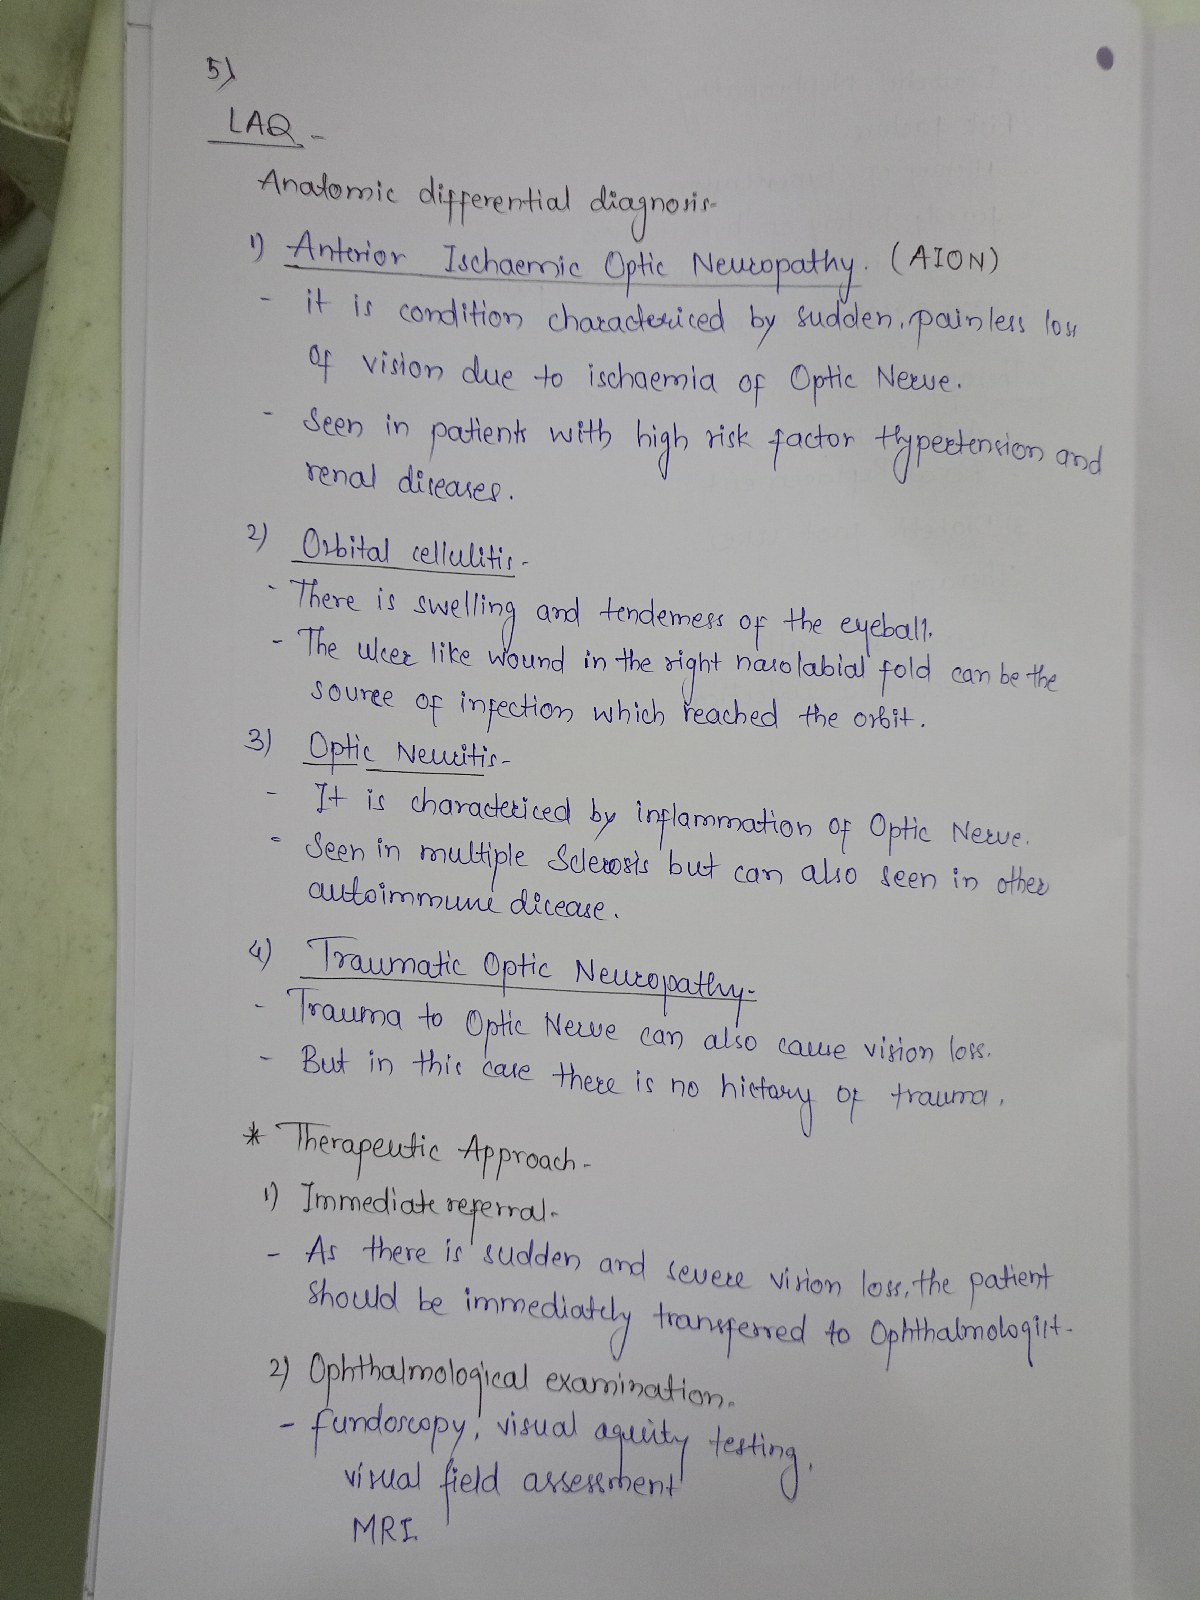 5)
LAQ -
Anatomic differential diagnosis-
1) Anterior Ischaemic Optic Neuropathy. (AION)
- it is condition charactericed by sudden, painless loss
of vision due to ischaemia of Optic Nerve.
- Seen in patients with high risk factor Hypertension and
renal diseases.
2) Orbital cellulitis-
- There is swelling and tenderness of the eyeball.
- The ulcer like wound in the right nasolabial fold can be the
source of infection which reached the orbit.
3) Optic Neuritis-
- It is charactericed by inflammation of Optic Nerve.
- Seen in multiple Sclerosis but can also seen in other
autoimmune dicease.
4) Traumatic Optic Neuropathy-
- Trauma to Optic Nerve can also cause vision loss.
- But in this case there is no history of trauma.
* Therapeutic Approach-
1) Immediate referral-
- As there is sudden and severe vision loss, the patient
should be immediately transferred to Ophthalmologist-
2) Ophthalmological examination-
- fundoscopy, visual aquity testing,
visual field assessment
MRI.